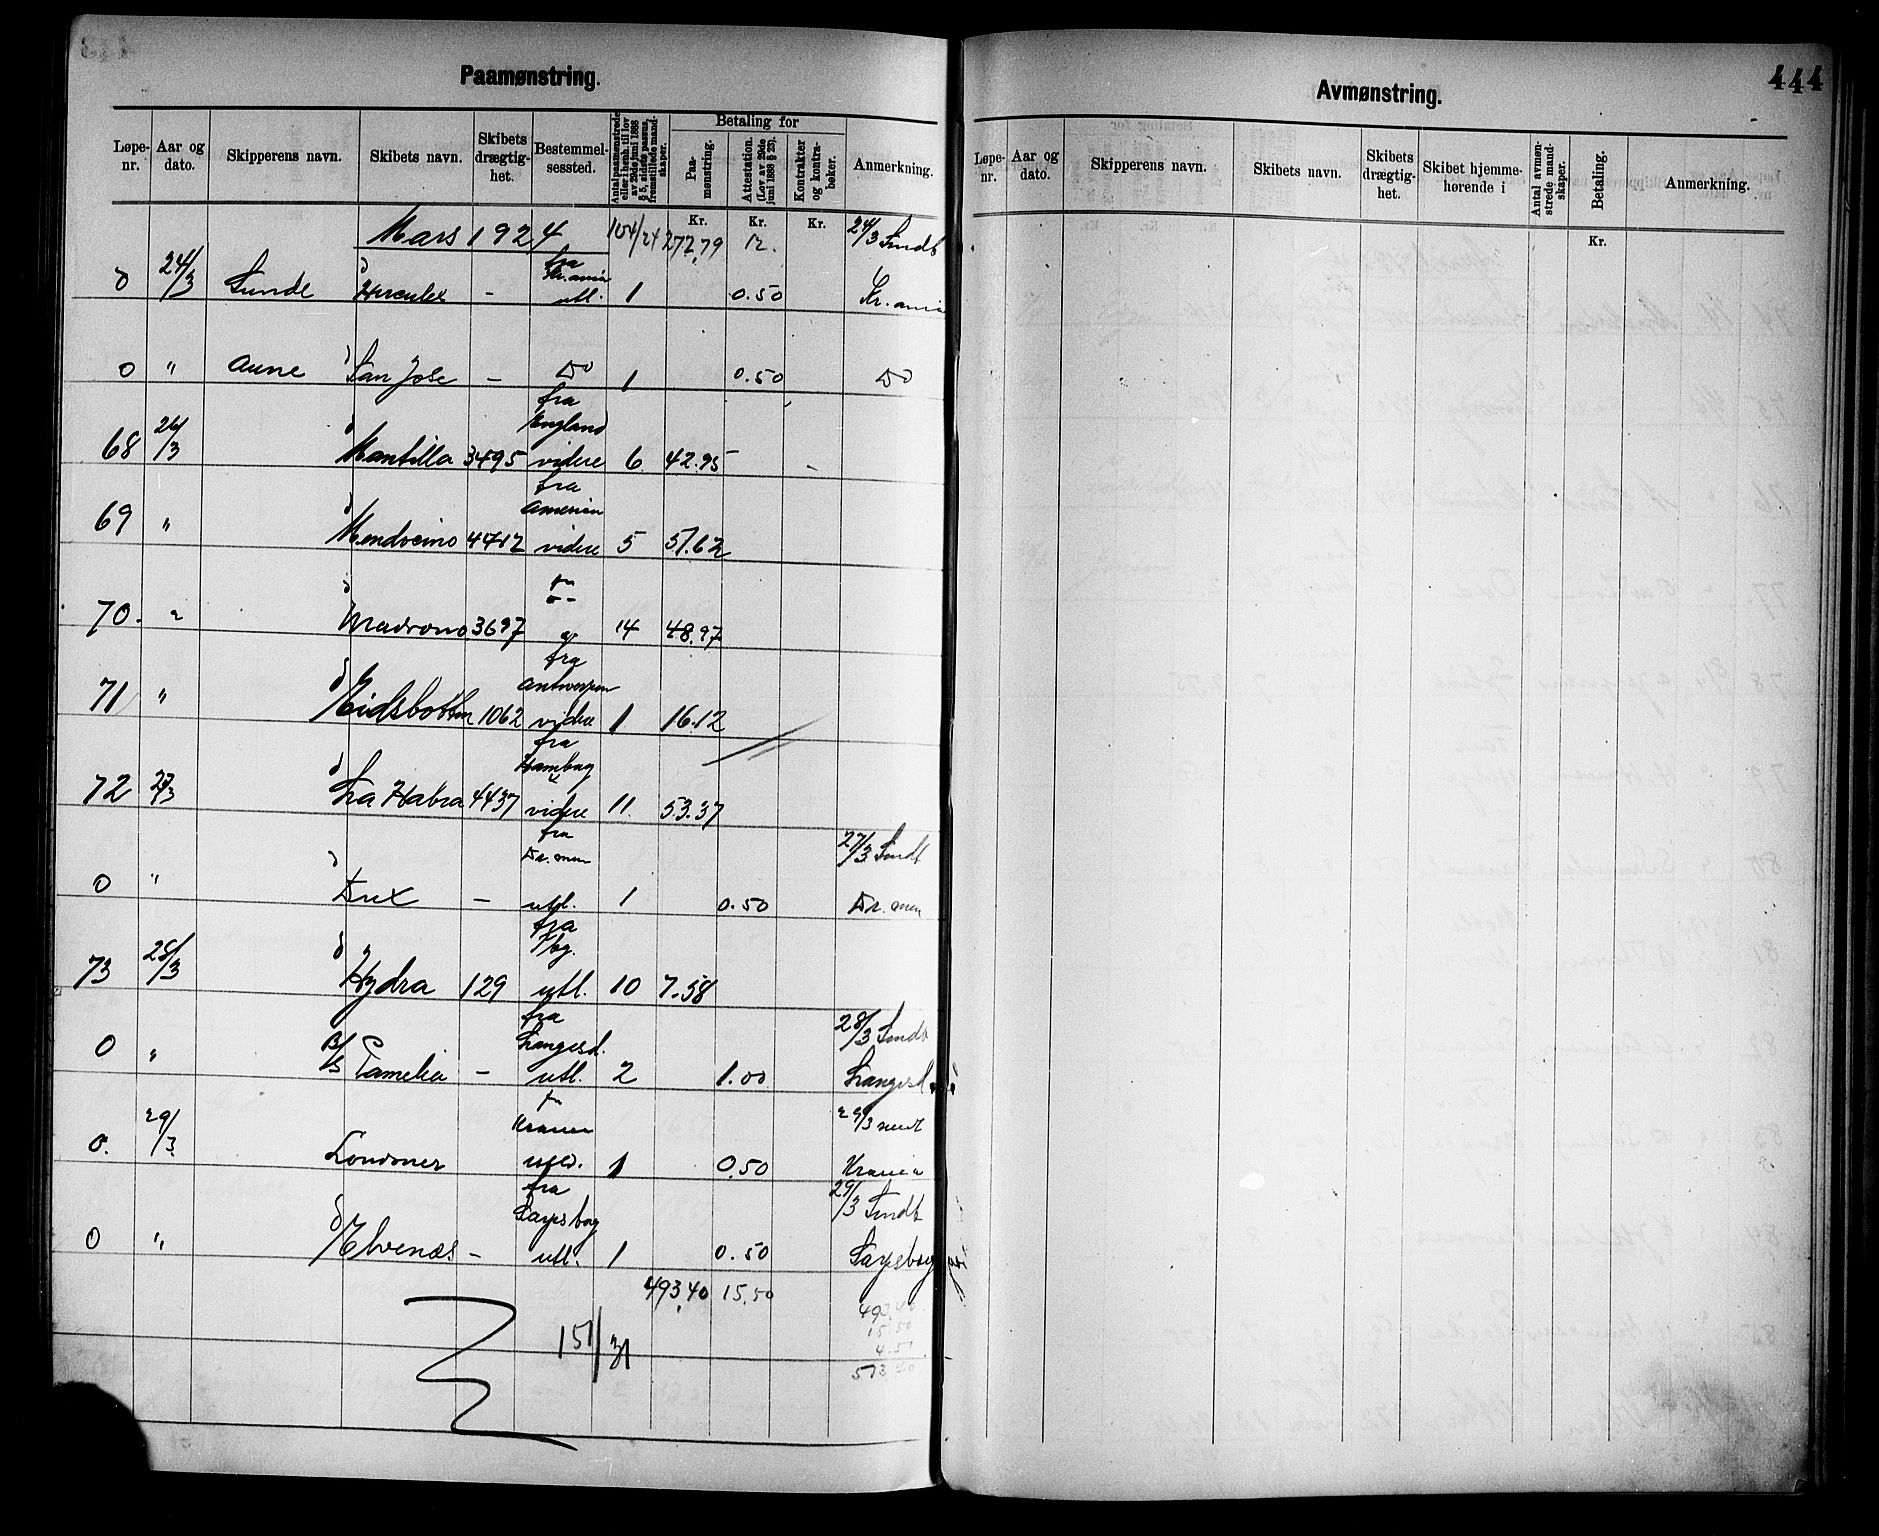 Paamønstring.
Løpe-nr. Aar og dato. Skipperens navn. Skibets navn. Skibets drægtig-het. Bestemmel-sessted. Antal paamønstrede eller i henh. til lov av 29de juni 1888 § 5, sidste passus, fremstillede mand-skaper. Betaling for Paa-mønstring. Attestation. (Lov av 29de juni 1888 § 23). Kontrakter og kontra-bøker. Anmerkning.
Kr. Kr. Kr.
Mars 1924 104/24 272,79 12. 24/3 Sendt
0 24/3 Sunde Hercules - fra Kr.ania utl. 1 0.50 Kr.ania
0 " Aune San Jose - Do 1 0.50 Do
68 26/3 Mantilla 3495 fra England videre 6 42.95
69 " Mendocino 4712 fra Amerika videre 5 51.62
70. " Madrono 3697 14 48.97
71 " Eidsbotten 1062 fra Antwerpen videre 1 16.12
72 27/3 La Habra 4437 fra Hambug videre 11. 53.37
0 " Dux - fra Dr.men utl. 1 0.50 27/3 Sendt Dr.men
73 28/3 Hydra 129 fra Tbg. utl. 10 7.58
0 " B/S Pamelia - fra Langesd. utl. 2 1.00 28/3 Sendt Langesd
0. 29/3 Londoner - Krania 1 0.50 29/3 sendt Krania
0 " Elvenæs - fra Sarpsborg utl. 1 0.50 29/3 Sendt Sarpsborg
493,40 15,50
151/31
493,40
15.50
4.51
513.40
Avmønstring.
444
Løpe-nr. Aar og dato. Skipperens navn. Skibets navn. Skibets drægtig-het. Skibet hjemme-hørende i Antal avmøn-strede mand-skaper. Betaling. Anmerkning.
Kr.